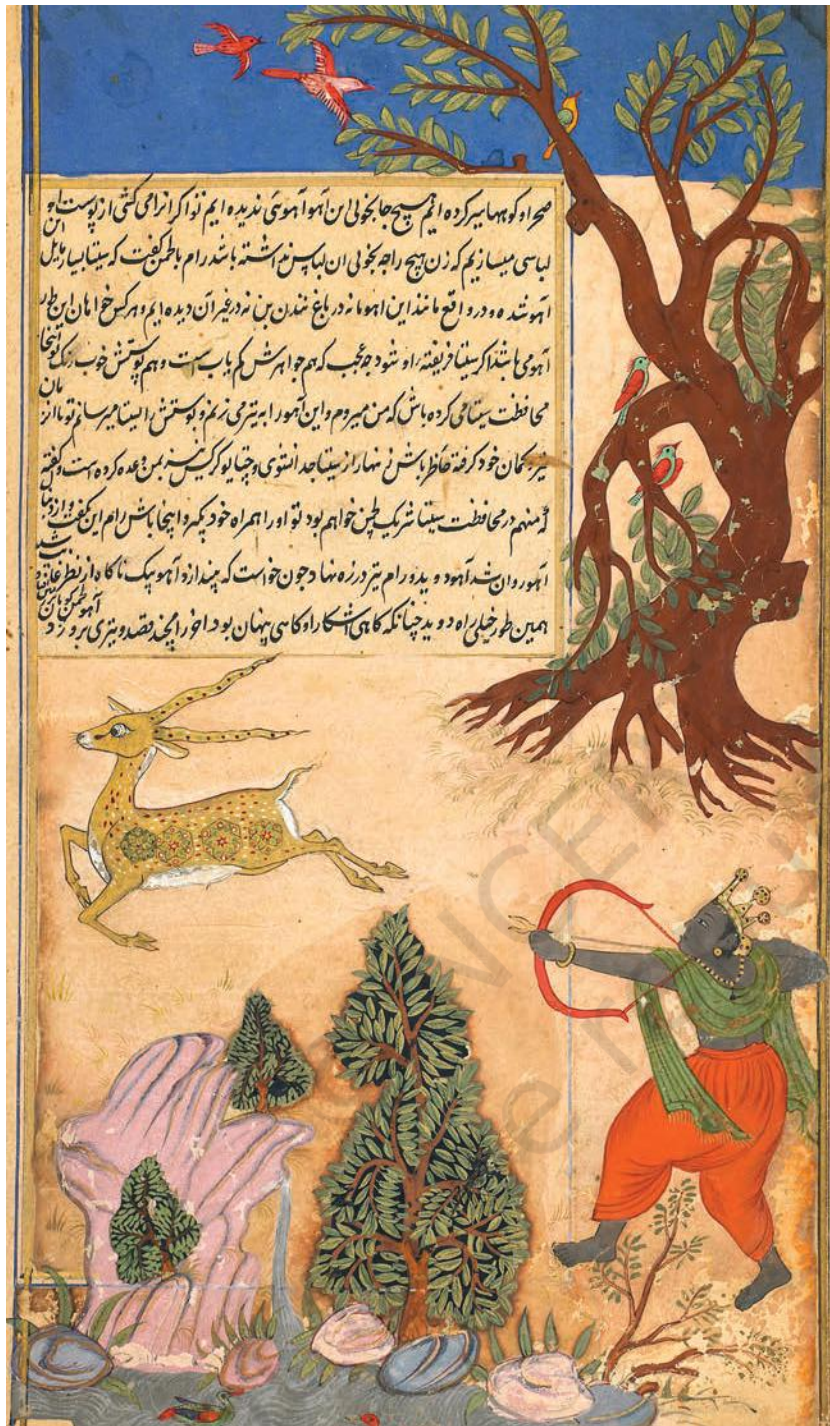 صحرا و کوهها سیر کرده ایم هیچ جا بخوبی این آهو آهوئی ندیده ایم تو اگر انرا می کشی از پوست او
لباسی میسازیم که زن هیچ راجه بخوبی ان لباس نداشته باشد رام با لچمن گفت که سیتا بسیار مایل این
آهو شده و در واقع مانند این اهو ما نه در باغ نندن بن نه در غیر آن دیده ایم و هر کس خواهان این طور
آهو می باشد اگر سیتا فریفته او شود چه عجب که هم جواهرش کم یاب است و هم پوستش خوب رنگ تو اینجا
محافظت سیتا می کرده باش که من میروم و این آهو را به تیر می زنم و پوستش را بسیتا میرسانم تو
تیر و کمان خود گرفته حاظر باش زنهار از سیتا جدا نشوی و بمن وعده کرده است و گفته
که منهم در محافظت سیتا شریک لچمن خواهم بود تو او را همراه خود بگیر و اینجا باش رام این بگفت و از دنبال
آهو روان شد آهو دوید و رام تیر در زه نهاد چون خواست که بیندازد آهو بیک ناکاه از نظر غایب شد
همین طور خیلی راه دوید چنانکه کاهی آشکارا و کاهی پنهان بود
NCERT